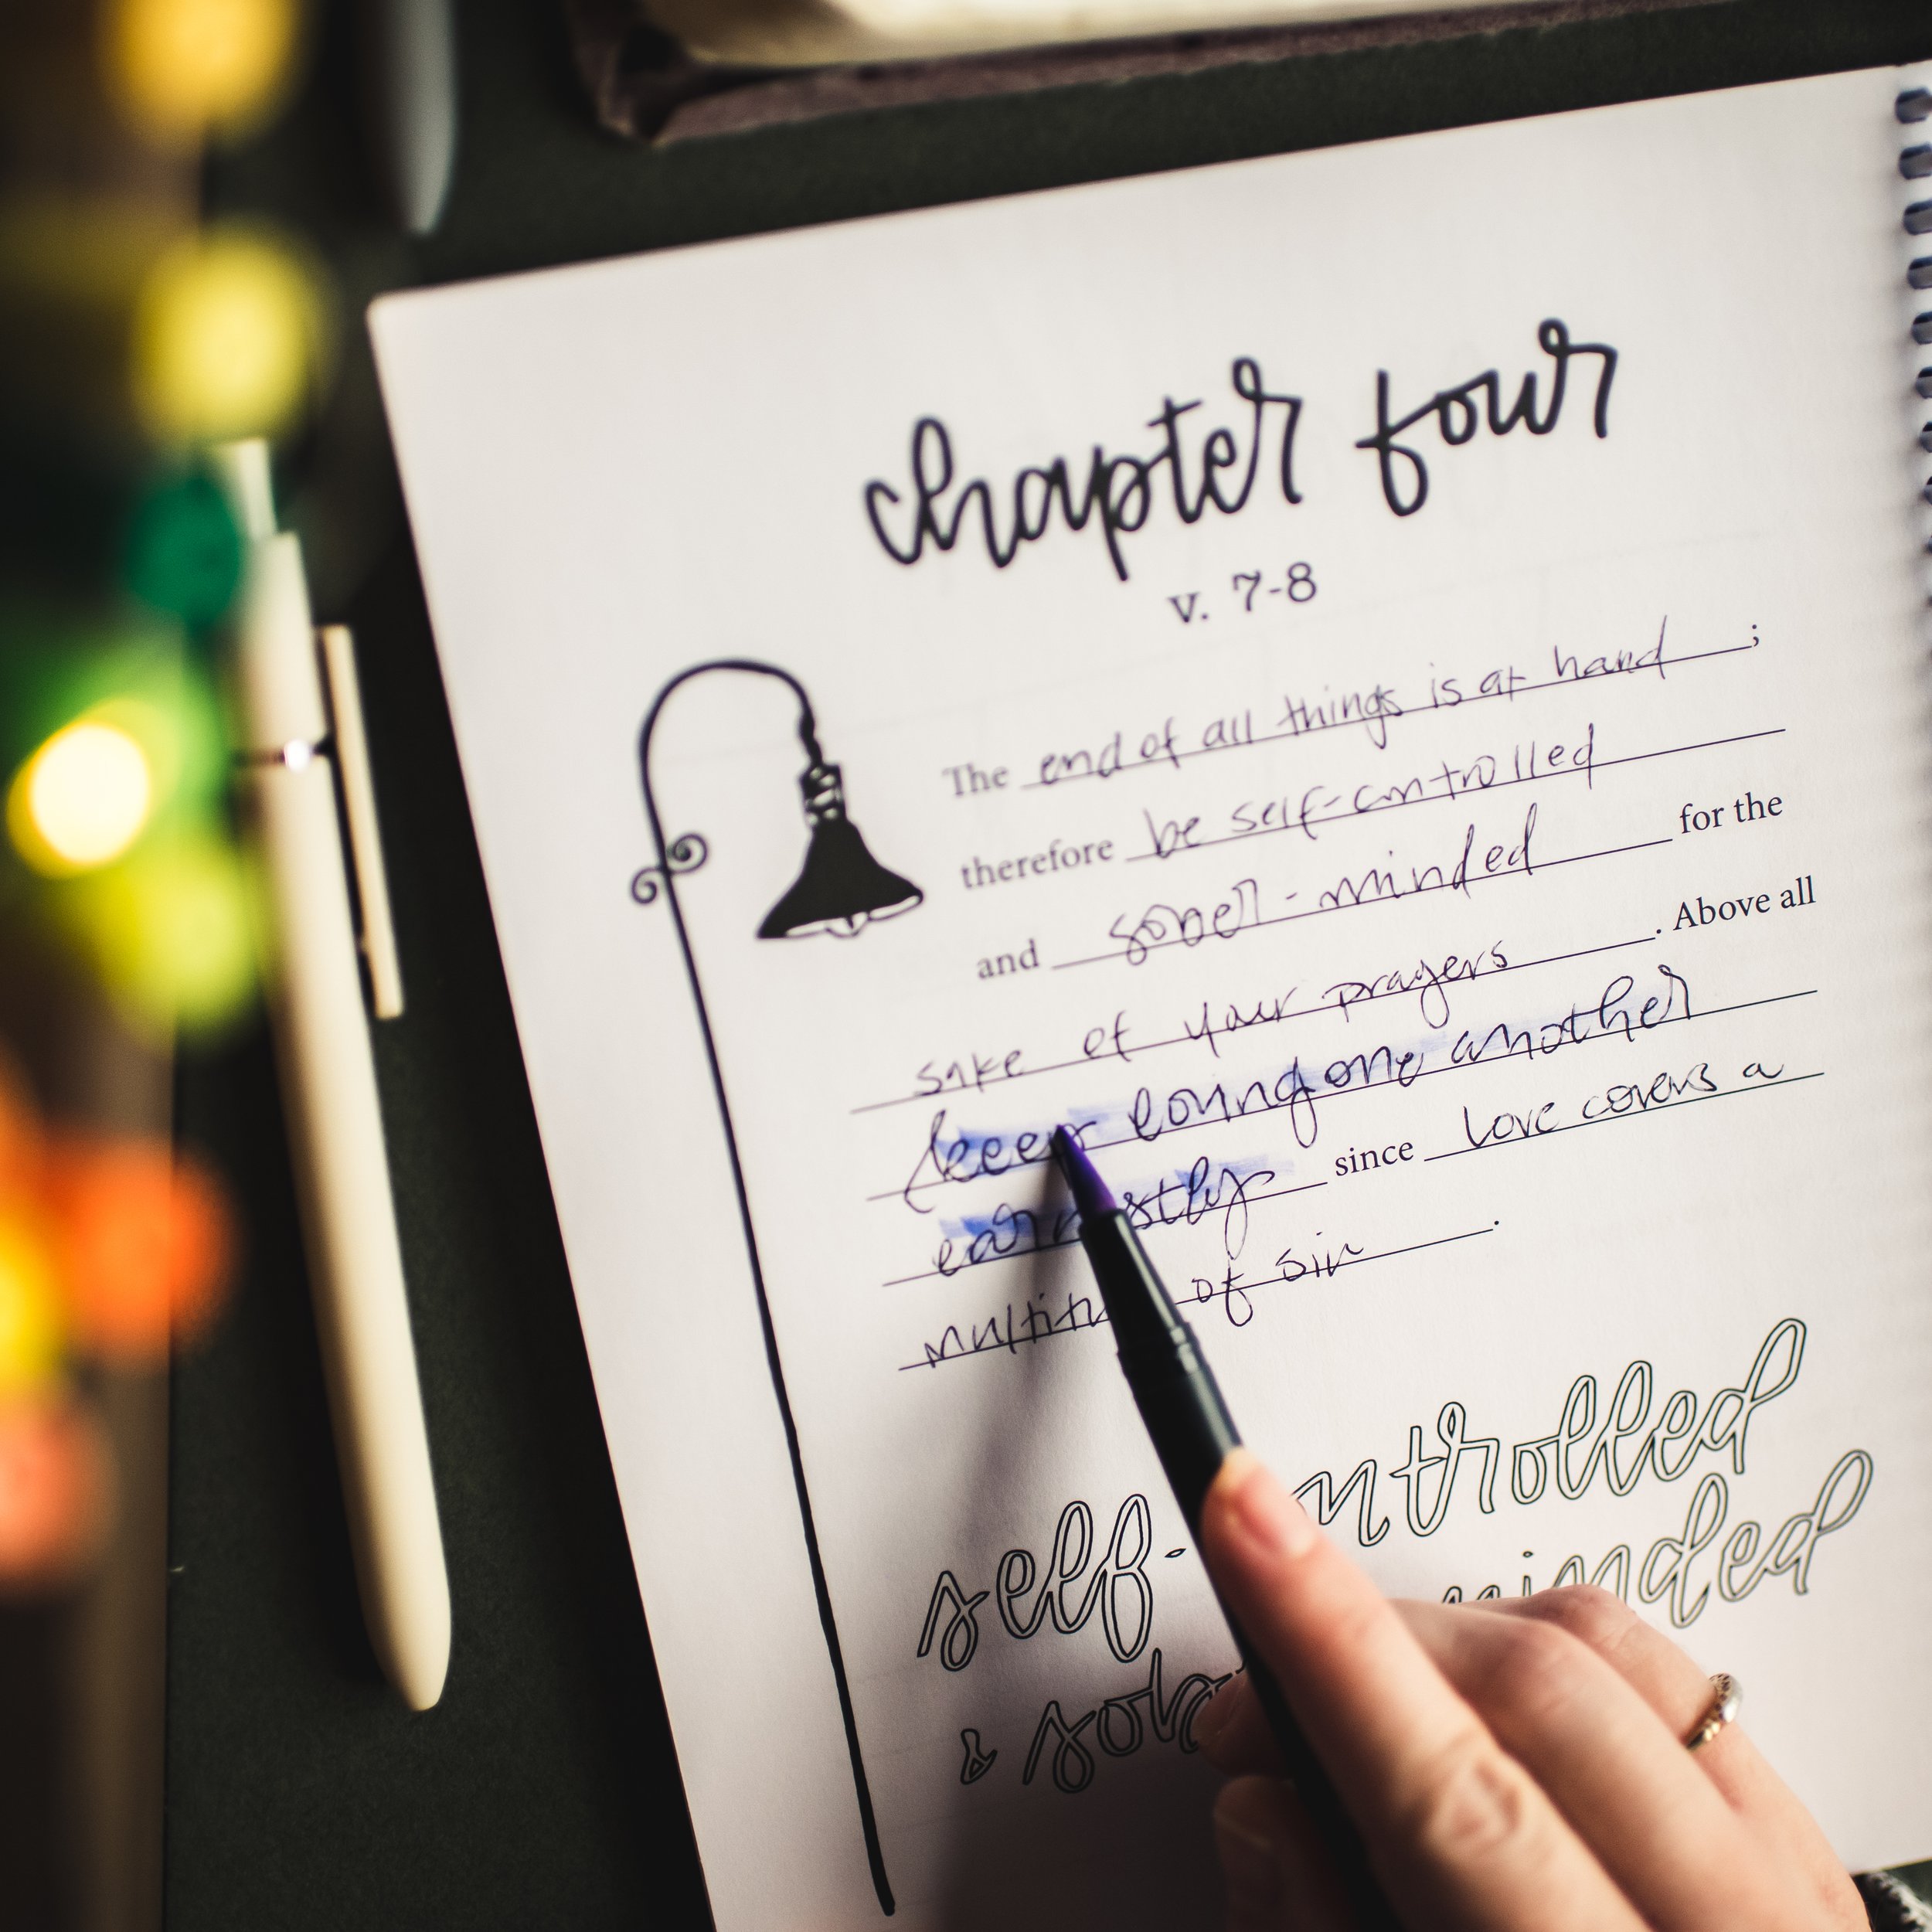 chapter four
v. 7-8
The end of all things is at hand ;
therefore be self-controlled
and sober-minded for the
sake of your prayers . Above all
keep loving one another
earnestly since love covers a
of sin .
self- ntrolled
& sob minded